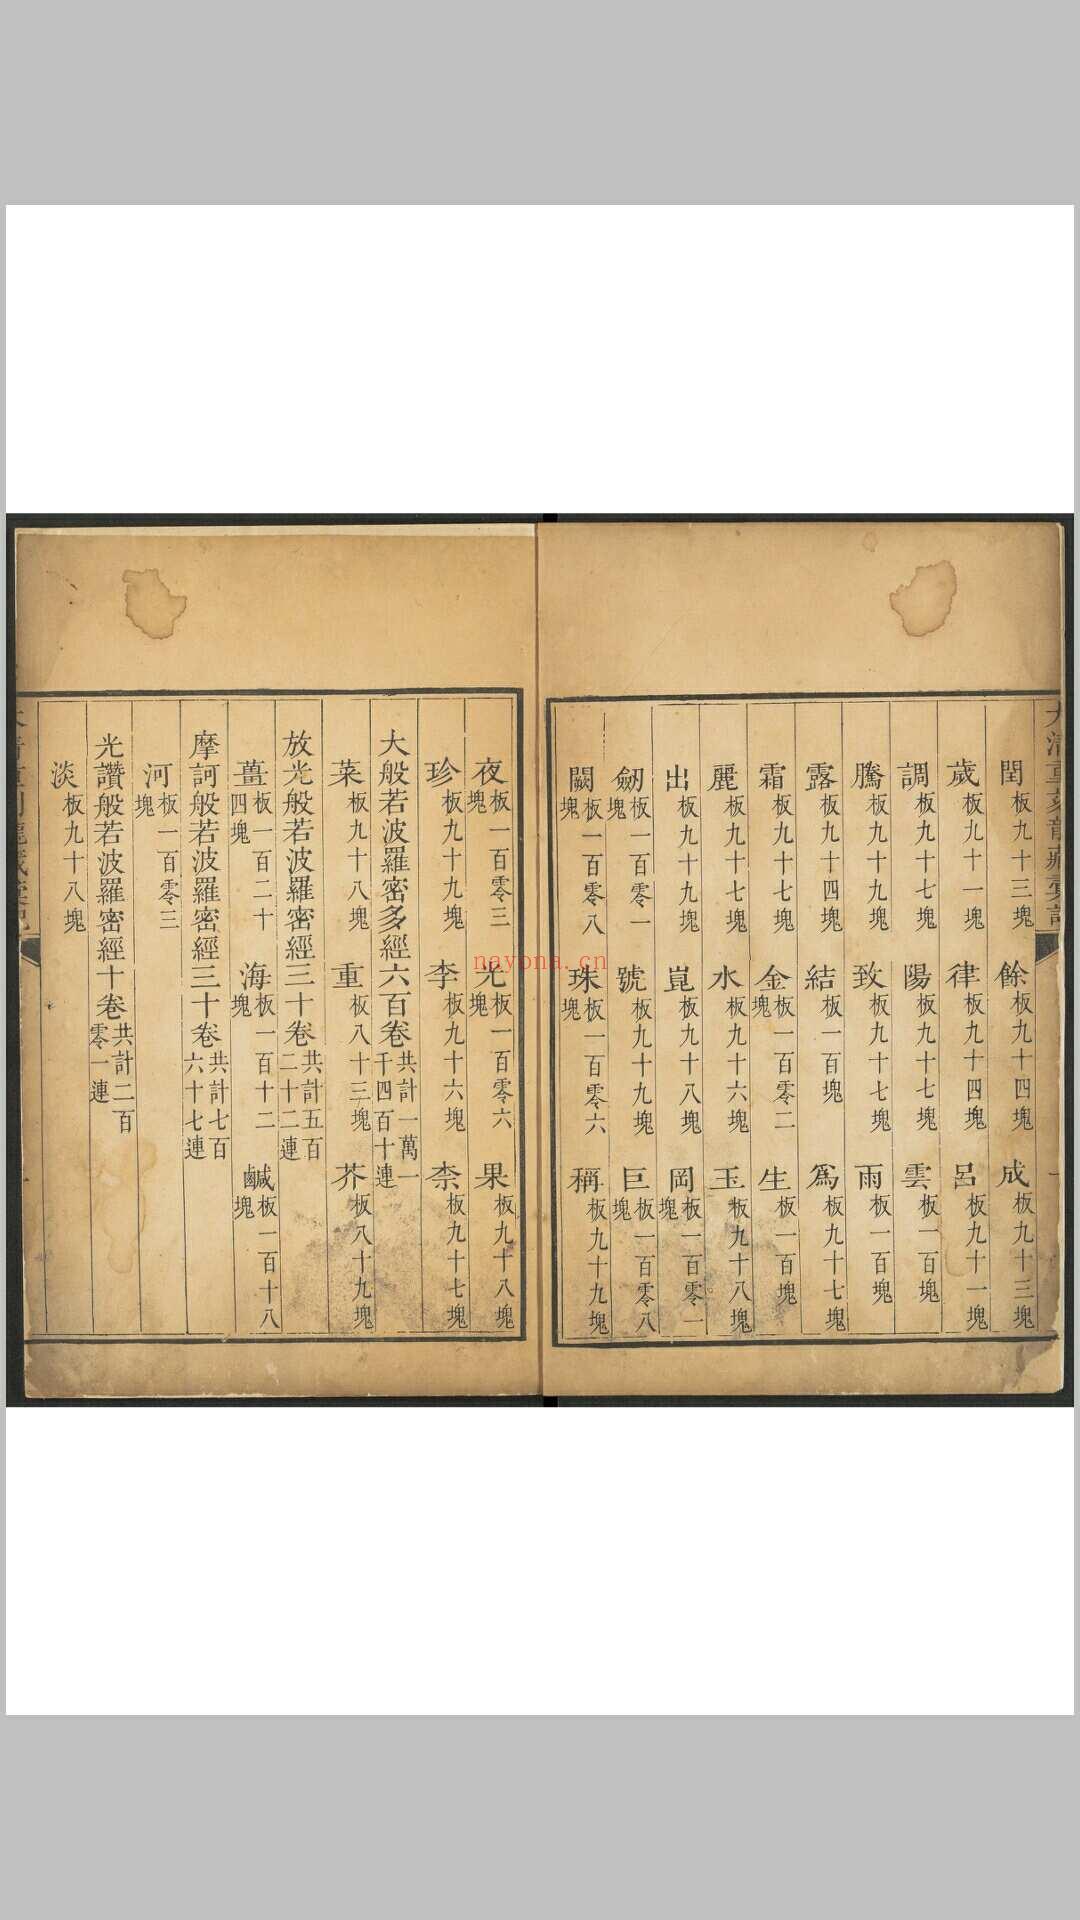 閏板九十三塊 餘板九十四塊 成板九十三塊
歲板九十一塊 律板九十四塊 呂板九十一塊
調板九十七塊 陽板九十七塊 雲板一百塊
騰板九十七塊 致板九十七塊 雨板一百塊
露板九十四塊 結板一百塊 爲板九十七塊
霜板九十七塊 金板一百零二塊 生板一百塊
麗板九十七塊 水板九十六塊 玉板九十八塊
出板九十九塊 崑板九十八塊 岡板一百零一塊
劒板一百零一塊 號板九十九塊 巨板一百零八塊
闕板一百零八塊 珠板一百零六塊 稱板九十九塊
夜板一百零三塊 光板一百零六塊 果板九十八塊
珍板九十九塊 李板九十六塊 柰板九十七塊
大般若波羅密多經六百卷共計一萬一千四百十連
菜板九十八塊 重板八十三塊 芥板八十九塊
放光般若波羅密經三十卷共計五百二十二連
薑板一百二十四塊 海板一百十二塊 鹹板一百十八塊
摩訶般若波羅密經三十卷共計七百六十七連
河板一百零三塊
光讚般若波羅密經十卷共計二百零一連
淡板九十八塊
nayona.cn